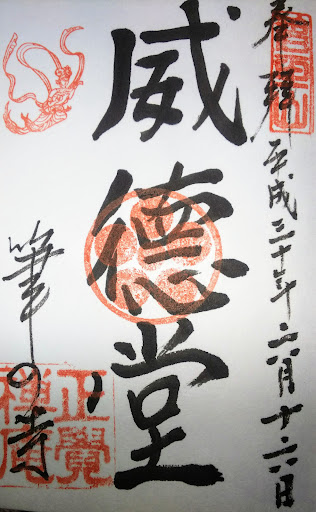 奉拝 平成三十年六月十六日
威德堂
筆の寺
正覺
禪庵